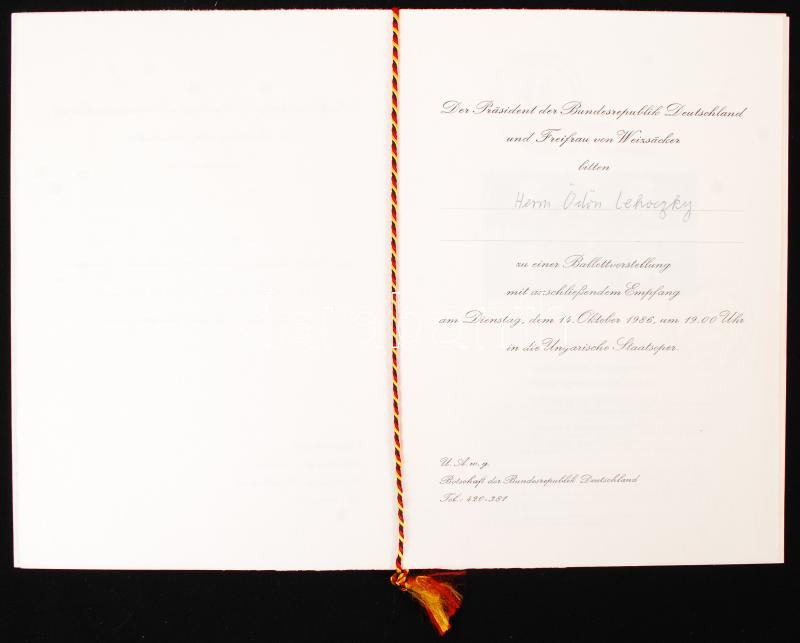 Der Präsident der Bundesrepublik Deutschland
und Freifrau von Weizsäcker
bitten
Herrn Ödön Lehoczky
zu einer Ballettvorstellung
mit anschließendem Empfang
am Dienstag, dem 14. Oktober 1986, um 19.00 Uhr
in die Ungarische Staatsoper.
U. A. w. g.
Botschaft der Bundesrepublik Deutschland
Tel.: 420-381